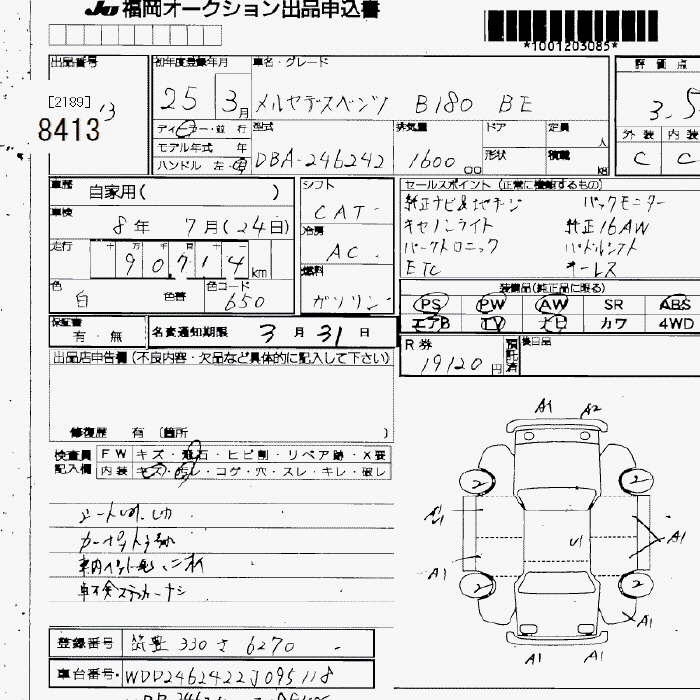 JU 福岡オークション出品申込書
*1001203085*
出品番号 初年度登録年月 車名・グレード 評価点
[2189] 13 25 3月 メルセデスベンツ B180 BE 3.5
8413 ディーラー・並行 型式 排気量 ドア 定員 人 外装 内装
モデル年式 年 形状 積載 kg
ハンドル 左・右 DBA-246242 1600 CC C C
車歴 自家用( ) シフト CAT セールスポイント(正常に機能するもの)
車検 8年 7月(24日) 冷房 AC 純正ナビ&地デジ バックモニター
キセノンライト 純正16AW
走行 十万千百十 90,714km 燃料 ガソリン パークトロニック パドルシフト
ETC キーレス
色 白 色替 色コード 650 装備品(純正品に限る)
PS PW AW SR ABS
エアB TV ナビ カワ 4WD
保証書 有・無 名変通知期限 3月31日 R券 19120円 預託済 後日品
出品店申告欄(不良内容・欠品など具体的に記入して下さい)
修復歴 有 (箇所 )
検査員記入欄 FW キズ・飛石・ヒビ割・リペア跡・X要
内装 キズ・汚レ・コゲ・穴・スレ・キレ・破レ
A1 A2
2 2
A1 U1 A1
A1
2 2
A1
A1 A1
車検ステッカーナシ
登録番号 筑豊 330 さ 6270
車台番号 WDD2462422J095118